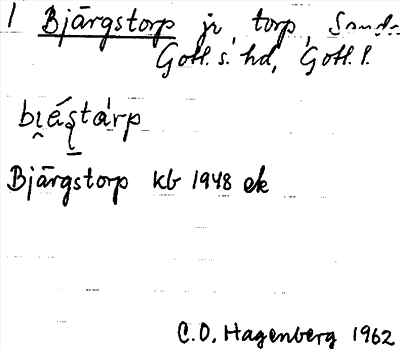 1 Bjärgstorp jr, torp, Sanda
Gotl. s. hd, Gotl. l.
bi̯éʂtàrp
Bjärgstorp kb 1948 ek
C.O. Hagenberg 1962